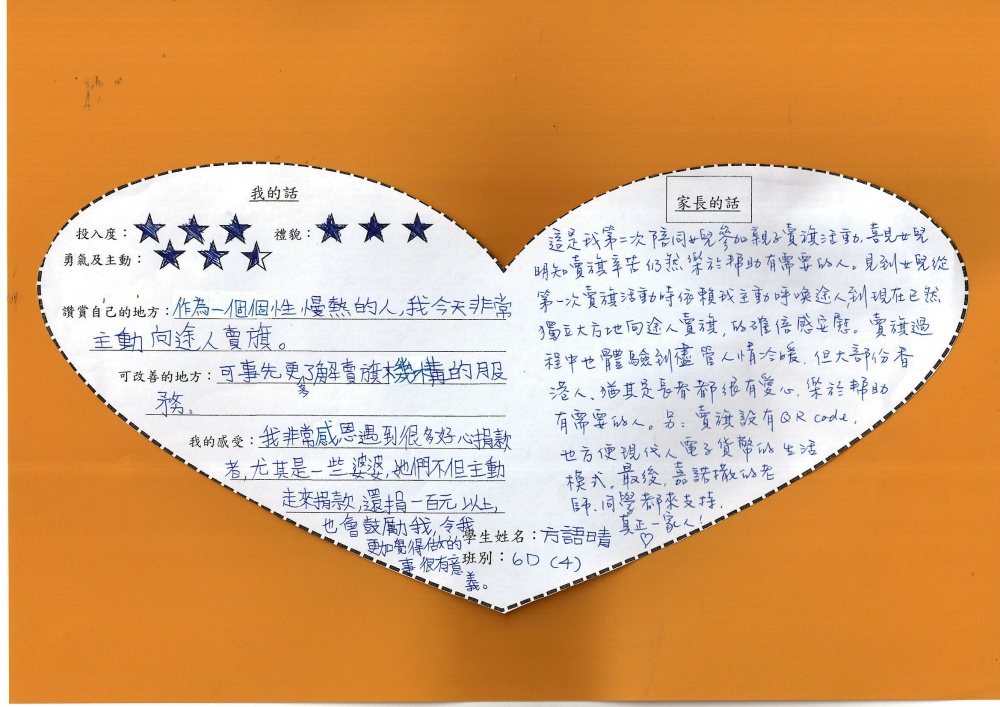 我的話
投入度：★ ★ ★ 禮貌：★ ★ ★
勇氣及主動：★ ★ ★
讚賞自己的地方：作為一個個性慢熱的人，我今天非常
主動向途人賣旗。
可改善的地方：可事先更多了解賣旗機構的服
務。
我的感受：我非常感恩遇到很多好心捐款
者，尤其是一些婆婆，她們不但主動
走來捐款，還捐一百元以上，
也會鼓勵我，令我
更加覺得做的
事很有意
義。
家長的話
這是我第二次陪同女兒參加親子賣旗活動，喜見女兒
明知賣旗辛苦仍然樂於幫助有需要的人。見到女兒從
第一次賣旗活動時依賴我主動呼喚途人到現在已然
獨立大方地向途人賣旗，的確倍感安慰。賣旗過
程中也體驗到儘管人情冷暖，但大部份香
港人，猶其是長者都很有愛心，樂於幫助
有需要的人。另：賣旗設有QR code，
也方便現代人電子貨幣的生活
模式。最後，嘉諾撒的老
師、同學都來支持，
真正一家人！
♡
學生姓名：方語晴
班別：6D (4)